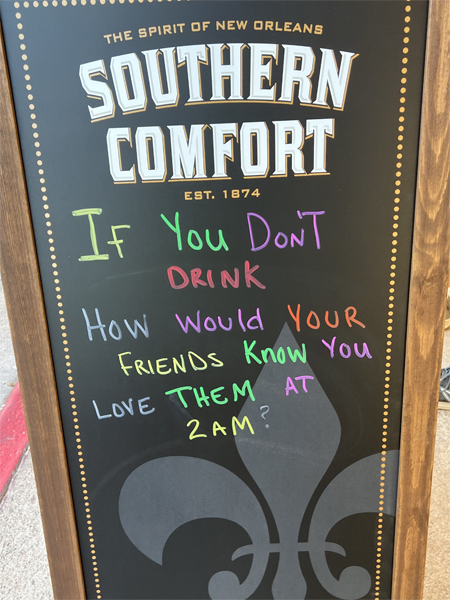 THE SPIRIT OF NEW ORLEANS
SOUTHERN
COMFORT
EST. 1874
IF You DON'T
DRINK
How Would YOUR
FRIENDS Know You
LOVE THEM AT
2AM?